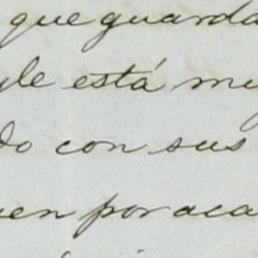 que guarda
yle está mu
do con sus
en por aca